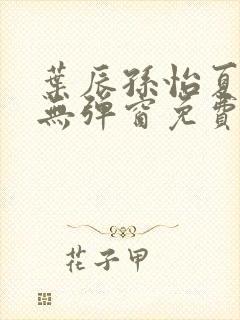 葉辰孫怡夏
無彈窗免費
花子甲